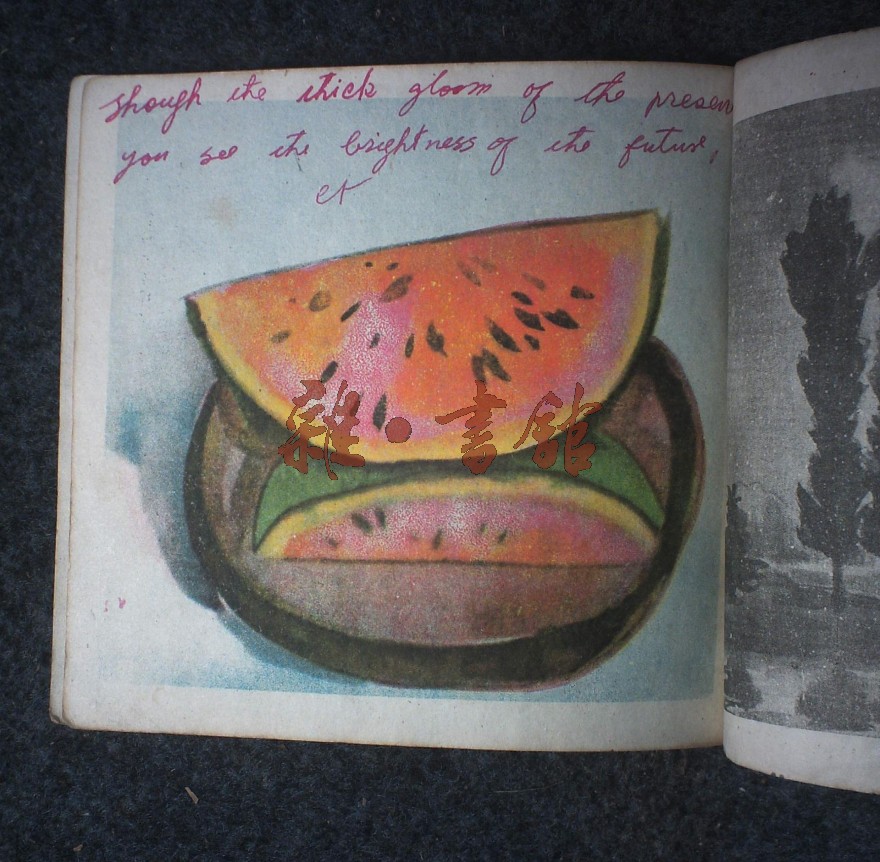 Though the thick gloom of the presen
you see the brightness of the future,
et
雜·書館